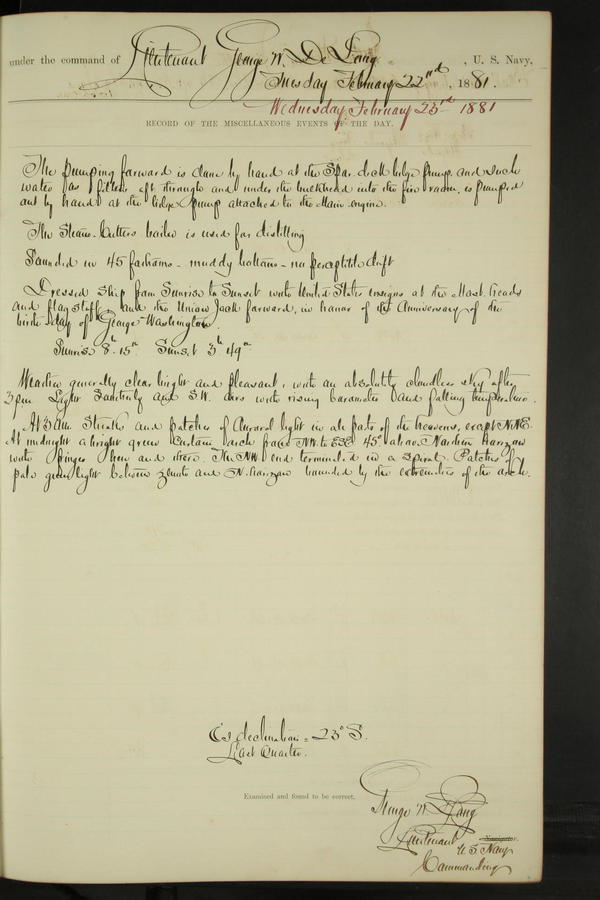 under the command of Lieutenant George W. De Long, U. S. Navy,
Tuesday February 22nd, 1881.
Wednesday, February 23rd 1881
RECORD OF THE MISCELLANEOUS EVENTS OF THE DAY.
The pumping forward is done by hand at the Spar deck bilge pump, and such
water as filters aft through and under the bulkhead into the fire room, is pumped
out by hand at the bilge pump attached to the Main engine.
The Steam-Cutters boiler is used for distilling
Sounded in 45 fathoms - muddy bottom - no perceptible drift
Dressed Ship from Sunrise to Sunset with United States ensigns at the Mast heads
and flag staff, and the Union Jack forward, in honor of the Anniversary of the
birth day of George Washington.
Sunrise 8h 15m Sunset 3h 49m
Weather generally clear bright and pleasant, with an absolutely cloudless sky after
3 pm. Light Southerly and S.W. airs with rising barometer and falling temperature.
At 3 AM Streaks and patches of Auroral light in all parts of the heavens, except NNE.
At midnight a bright green Curtain arch from NW to ESE 45° above Northern horizon
with fringes here and there. The NW end terminated in a spiral. Patches of
pale green light between zenith and N. horizon bounded by the extremities of the arch.
declination = 23° S.
Last Quarter.
Examined and found to be correct.
George W. De Long
Lieutenant Navigator.
U. S. Navy
Commanding